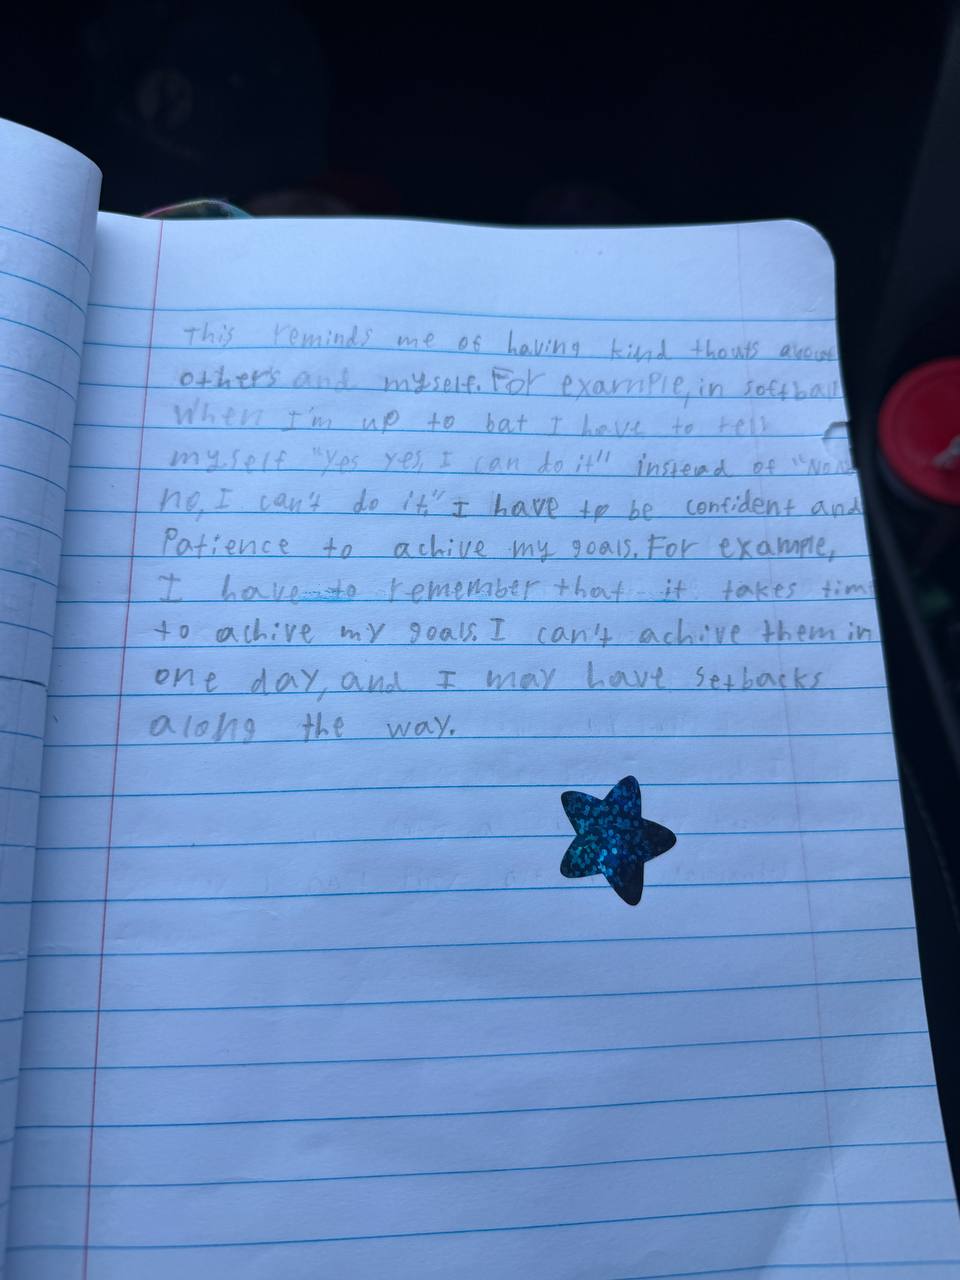 This reminds me of having kind thouts about
others and myself. For example, in softball
When I'm up to bat I have to tell
myself "Yes yes, I can do it" instead of "No
no, I can't do it," I have to be confident and
Patience to achive my goals. For example,
I have to remember that it takes time
to achive my goals. I can't achive them in
one day, and I may have setbacks
along the way.